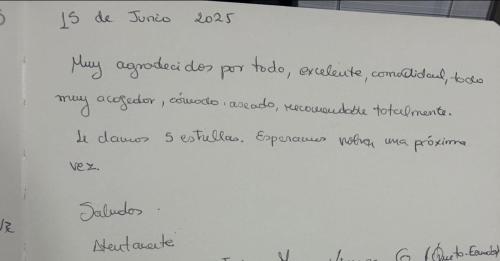 15 de Junio 2025
Muy agradecidos por todo, excelente, comodidad, todo
muy acogedor, cómodo, aseado, recomendable totalmente.
Le damos 5 estrellas. Esperamos volver una próxima
vez.
Saludos.
Atentamente